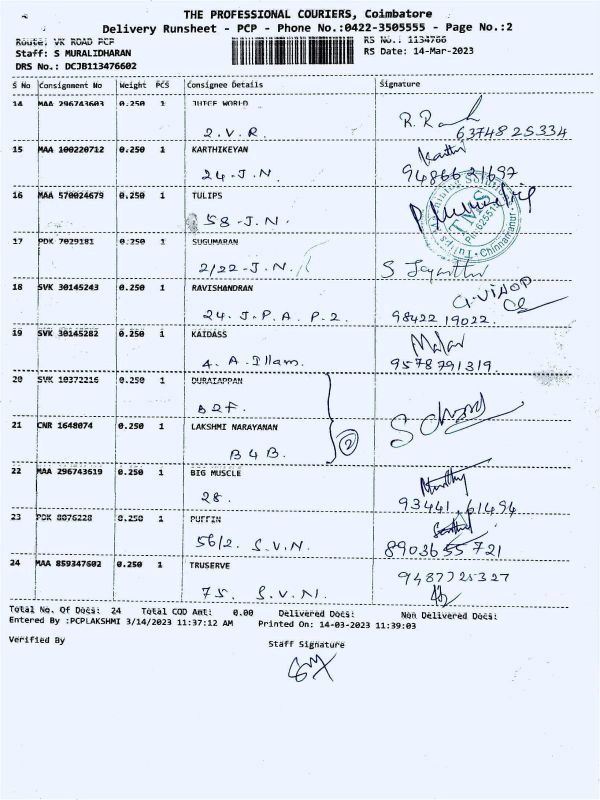 THE PROFESSIONAL COURIERS, Coimbatore
Delivery Runsheet - PCP - Phone No.:0422-3505555 - Page No.:2
Route: VK ROAD PCP
RS No.: 1134766
Staff: S MURALIDHARAN
RS Date: 14-Mar-2023
DRS No.: DCJB113476602
S No Consignment No Weight PCS Consignee Details Signature
14 MAA 296743603 0.250 1 JUICE WORLD
2.V.R.
63748 25334
15 MAA 100220712 0.250 1 KARTHIKEYAN
24-J.N.
9486621697
16 MAA 570024679 0.250 1 TULIPS
58-J.N.
TMS
Chinnavanur
17 PDK 7029181 0.250 1 SUGUMARAN
2/22-J.N.
18 SVK 30145243 0.250 1 RAVISHANDRAN
G.VINOD
24. J.P.A P-2.
98422 19022.
19 SVK 30145282 0.250 1 KAIDASS
Malar
A. A. Illam.
9578791319.
20 SVK 10372216 0.250 1 DURAIAPPAN
B2F.
21 CNR 1648074 0.250 1 LAKSHMI NARAYANAN
B4B.
2
22 MAA 296743619 0.250 1 BIG MUSCLE
28.
93441.61494
23 PDK 8076228 0.250 1 PUFFIN
56/2. S.V.N.
8903655721
24 MAA 859347602 0.250 1 TRUSERVE
9487725327
75. S.V.N.
Total No. Of Docs: 24 Total COD Amt: 0.00 Delivered Docs: Non Delivered Docs:
Entered By :PCPLAKSHMI 3/14/2023 11:37:12 AM Printed On: 14-03-2023 11:39:03
Verified By
Staff Signature